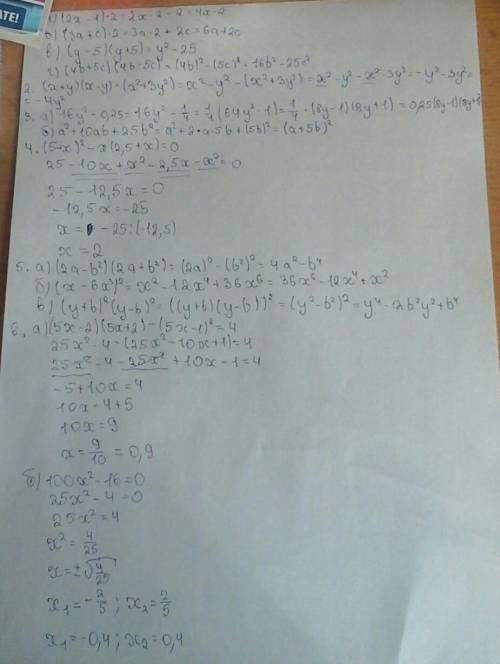 ATE!
а) (2x-1)·2 = 2x·2-2 = 4x-2
б) (3a+c)·2 = 3a·2+2c = 6a+2c
в) (y-5)(y+5) = y²-25
г) (4b+5c)(4b-5c) = (4b)²-(5c)² = 16b²-25c²
2. (x+y)(x-y)-(x²+3y²) = x²-y²-(x²+3y²) = x²-y²-x²-3y² = -y²-3y² =
= -4y²
3. а) 16y²-0,25 = 16y²-1/4 = 1/4(64y²-1) = 1/4·(8y-1)(8y+1) = 0,25(8y-1)(8y+1)
б) a²+10ab+25b² = a²+2·a·5b+(5b)² = (a+5b)²
4. (5-x)²-x(2,5+x)=0
25-10x+x²-2,5x-x²=0
25-12,5x=0
-12,5x=-25
x= -25:(-12,5)
x=2
5. а) (2a-b²)(2a+b²) = (2a)²-(b²)² = 4a²-b⁴
б) (x-6x³)² = x²-12x⁴+36x⁶ = 36x⁶-12x⁴+x²
в) (y+b)²(y-b)² = ((y+b)(y-b))² = (y²-b²)² = y⁴-2b²y²+b⁴
6. а) (5x-2)(5x+2)-(5x-1)²=4
25x²-4-(25x²-10x+1)=4
25x²-4-25x²+10x-1=4
-5+10x=4
10x=4+5
10x=9
x=9/10=0,9
б) 100x²-16=0
25x²-4=0
25x²=4
x²=4/25
x=±√4/25
x₁=-2/5; x₂=2/5
x₁=-0,4; x₂=0,4